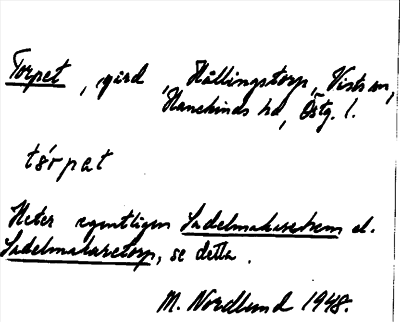 Torpet, gård, Hållingstorp, Vists sn,
Hanekinds hd, Östg. l.
tɷ́rpat
Heter egentligen Sadelmakarehem el.
Sadelmakaretorp, se detta.
M. Nordlund 1948.